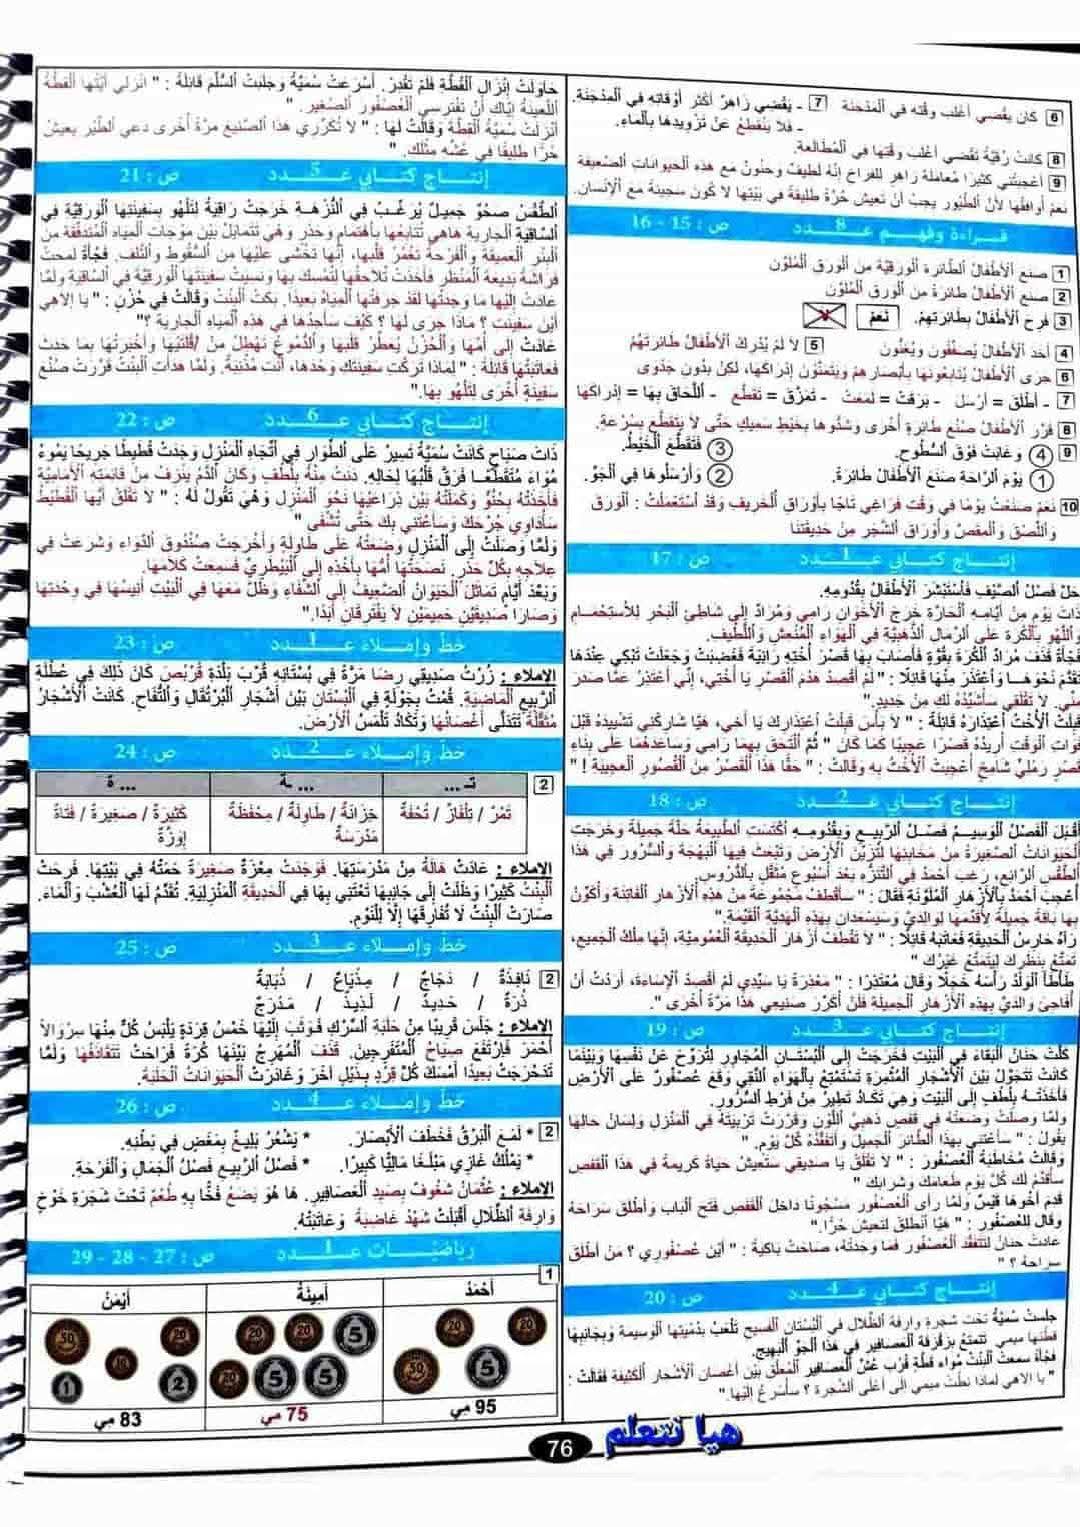 6 كان يقضي أغلب وقته في المدجنة 7 - يقضي زاهر أكثر أوقاته في المدجنة.
- فلا ينقطع عن تزويدها بالماء.
8 كانت رقية تقضي أغلب وقتها في المطالعة.
9 أعجبتني كثيرا معاملة زاهر للفراخ إنه لطيف وحنون مع هذه الحيوانات الضعيفة
نعم أوافقها لأن الطيور يجب أن تعيش حرة طليقة في بيتها لا تكون سجينة مع الإنسان.
قراءة وفهم عــدد 8 ص : 15 - 16
1 صنع الأطفال الطائرة الورقية من الورق الملون
2 صنع الأطفال طائرة من الورق الملون
3 فرح الأطفال بطائرتهم. نعم لا
4 أخذ الأطفال يصفقون ويغنون 5 لا لم يدرك الأطفال طائرتهم
6 جرى الأطفال يتابعونها بأبصارهم ويتمنون إدراكها، لكن بدون جدوى
7 - أطلق = أرسل - برقت = لمعت - تمزق = تقطع - اللحاق بها = إدراكها
8 قرر الأطفال صنع طائرة أخرى وشدوها بخيط سميك حتى لا يتقطع بسرعة.
9 4 وغابت فوق السطوح. 3 فتقطع الخيط.
1 يوم الراحة صنع الأطفال طائرة. 2 وأرسلوها في الجو.
10 نعم صنعت يوما في وقت فراغي تاجا بأوراق الخريف وقد استعملت : الورق
واللصق والمقص وأوراق الشجر من حديقتنا
إنتاج كتابي عــدد 1 ص : 17
حل فصل الصيف فاستبشر الأطفال بقدومه.
ذات يوم من أيامه الحارة خرج الأخوان رامي ومراد إلى شاطئ البحر للاستحمام
واللهو بالكرة على الرمال الذهبية في الهواء المنعش واللطيف.
فجأة قذف مراد الكرة بقوة فأصاب بها قصر أخته رانية فغضبت وجعلت تبكي عندها
تقدم نحوها واعتذر منها قائلا : " لم أقصد هدم القصر يا أختي، إني أعتذر عما صدر
مني. لا تقلقي سأشيده لك من جديد."
قبلت الأخت اعتذاره قائلة : " لا بأس قبلت اعتذارك يا أخي، هيا شاركني تشييده قبل
فوات الوقت أريده قصرا عجيبا كما كان " ثم التحق بهما رامي وساعدهما على بناء
قصر رملي شامخ أعجبت الأخت به وقالت : " حقا هذا القصر من القصور العجيبة ! "
إنتاج كتابي عــدد 2 ص : 18
أقبل الفصل الوسيم فصل الربيع وبقدومه اكتست الطبيعة حلة جميلة وخرجت
الحيوانات الصغيرة من مخابئها لتزين الأرض وتبعث فيها البهجة والسرور في هذا
الطقس الرائع، رغب أحمد في التنزه بعد أسبوع مثقل بالدروس.
أعجب أحمد بالأزهار الملونة فقال : " سأقطف مجموعة من هذه الأزهار الفاتنة وأكون
بها باقة جميلة لأقدمها لوالدي وسيسعدان بهذه الهدية القيمة."
رآه حارس الحديقة فعاتبه قائلا : " لا تقطف أزهار الحديقة العمومية، إنها ملك الجميع،
تمتع بنظرك ليتمتع غيرك "
طأطأ الولد رأسه خجلا وقال معتذرا : " معذرة يا سيدي لم أقصد الإساءة، أردت أن
أفاجئ والدي بهذه الأزهار الجميلة فلن أكرر صنيعي هذا مرة أخرى "
إنتاج كتابي عــدد 3 ص : 19
كلت حنان البقاء في البيت فخرجت إلى البستان المجاور لتروح عن نفسها وبينما
كانت تتجول بين الأشجار المثمرة تستمتع بالهواء النقي وقع عصفور على الأرض
فأخذته بلطف إلى البيت وهي تكاد تطير من فرط السرور.
ولما وصلت وضعته في قفص ذهبي اللون وقررت تربيته في المنزل ولسان حالها
يقول : " سأعتني بهذا الطائر الجميل وأتفقده كل يوم. "
وقالت مخاطبة العصفور : " لا تقلق يا صديقي ستعيش حياة كريمة في هذا القفص
سأقدم لك كل يوم طعامك وشرابك "
قدم أخوها قيس ولما رأى العصفور مسجونا داخل القفص فتح الباب وأطلق سراحه
وقال للعصفور : " هيا انطلق لتعيش حرا."
عادت حنان لتتفقد العصفور فما وجدته، صاحت باكية : " أين عصفوري ؟ من أطلق
سراحه ؟ "
إنتاج كتابي عــدد 4 ص : 20
جلست سمية تحت شجرة وارفة الظلال في البستان الفسيح تلعب بدميتها الوسيمة وبجانبها
قطتها ميمي تتمتع بزقزقة العصافير في هذا الجو البهيج.
فجأة سمعت البنت مواء قطة قرب عش العصافير المعلق بين أغصان الأشجار الكثيفة فقالت :
" يا الاهي لماذا نطت ميمي الى أعلى الشجرة ؟ سأسرع إليها."
حاولت إنزال القطة فلم تقدر. أسرعت سمية وجلبت السلم قائلة : " انزلي أيتها القطة
اللعينة إياك أن تفترسي العصفور الصغير. "
أنزلت سمية القطة وقالت لها : " لا تكرري هذا الصنيع مرة أخرى دعي الطير يعيش
حرا طليقا في عشه مثلك. "
إنتاج كتابي عــدد 5 ص : 21
الطقس صحو جميل يرغب في النزهة خرجت راقية لتلهو بسفينتها الورقية في
الساقية الجارية هاهي تتابعها باهتمام وحذر وهي تتمايل بين موجات المياه المتدفقة من
البئر العميقة والفرحة تغمر قلبها، إنها تخشى عليها من السقوط والتلف. فجأة لمحت
فراشة بديعة المنظر فأخذت تلاحقها لتمسك بها ونسيت سفينتها الورقية في الساقية ولما
عادت إليها ما وجدتها لقد جرفتها المياه بعيدا. بكت البنت وقالت في حزن : " يا إلاهي
أين سفينتي ؟ ماذا جرى لها ؟ كيف سأجدها في هذه المياه الجارية ؟"
عادت إلى أمها والحزن يعطر قلبها والدموع تهطل من مقلتيها وأخبرتها بما حدث
فعاتبتها قائلة : " لماذا تركت سفينتك وحدها، أنت مذنبة. ولما هدأت البنت قررت صنع
سفينة أخرى لتلهو بها."
إنتاج كتابي عــدد 6 ص : 22
ذات صباح كانت سمية تسير على الطوار في اتجاه المنزل وجدت قطيطا جريحا يموء
مواء متقطعا فرق قلبها لحاله. دنت منه بلطف وكان الدم ينزف من قائمته الأمامية
فأخذته بحنو وكملته بين ذراعيها نحو المنزل وهي تقول له : " لا تقلق أيها القطيط
سأداوي جرحك وسأعتني بك حتى تشفى "
ولما وصلت إلى المنزل وضعته على طاولة وأخرجت صندوق الدواء وشرعت في
علاجه بكل حذر. نصحتها أمها بأخذه إلى البيطري فسمعت كلامها.
وبعد أيام تماثل الحيوان الضعيف إلى الشفاء وظل معها في البيت أنيسها في وحدتها
وصارا صديقين حميمين لا يفترقان أبدا."
خط وإملاء عــدد 1 ص : 23
الإملاء : زرت صديقي رضا مرة في بستانه قرب بلدة قربص كان ذلك في عطلة
الربيع الماضية. قمت بجولة في البستان بين أشجار البرتقال والتفاح. كانت الأشجار
مثقلة تتدلى أغصانها وتكاد تلمس الأرض.
خط وإملاء عــدد 2 ص : 24
2 تـ ... ... ـة ... ة
تمر / تلفاز / تحفة خزانة / طاولة / محفظة كثيرة / صغيرة / فتاة
مدرسة إوزة
الإملاء : عادت هالة من مدرستها. فوجدت معزة صغيرة خمته في بيتها. فرحت
البنت كثيرا وظلت إلى جانبها تعتني بها في الحديقة المنزلية. تقدم لها العشب والماء.
صارت البنت لا تفارقها إلا للنوم.
خط وإملاء عــدد 3 ص : 25
2 نافذة / دجاج / مذياع / ذبابة
ذرة / حديد / لذيذ / مدرج
الإملاء : جلس قريبا من حلبة السرك فوثب إليها خمس قردة يلبس كل منها سروالا
أحمر فارتفع صياح المتفرجين. قذف المهرج بينها كرة فراحت تتقاذفها ولما
تدحرجت بعيدا أمسك كل قرد بذيل آخر وغادرت الحيوانات الحلبة.
خط وإملاء عــدد 4 ص : 26
2 * لمع البرق فخطف الأبصار. * يشعر بليغ بمغص في بطنه.
* يملك غازي مبلغا ماليا كبيرا. * فصل الربيع فصل الجمال والفرحة.
الإملاء : عثمان شغوف بصيد العصافير. ها هو يضع فخا به طعم تحت شجرة خوخ
وارفة الظلال أقبلت شهد غاضبة وعاتبته.
رياضيات عــدد 1 ص : 27 - 28 - 29
1 أحمد أمينة أيمن
20 20 50 5
5 20 20 5 5 20
20 50 10 2 1
95 مي 75 مي 83 مي
هيا نتعلم
76